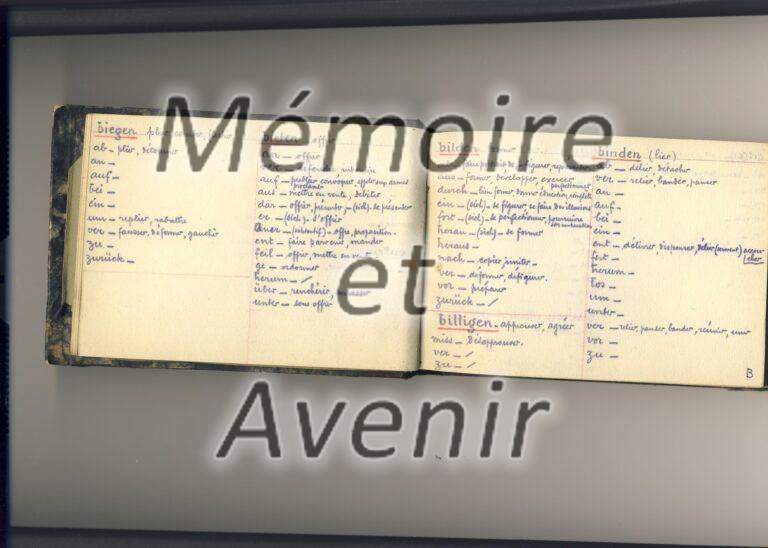 Mémoire
et
Avenir
biegen plier, courber,
ab _ plier, détourner
an _
auf _
bei _
ein _
um _ replier, rabattre
ver _ fausser, déformer, gauchir
zu _
zurück _
bieten offrir
an _ offrir
auf _ publier, convoquer,
aus _ mettre en vente, débiter
dar _ offrir, présenter, _ (sich) _ se présenter
er _ (sich) _ s'offrir
(substantif) _ offre, proposition.
ent _ faire parvenir, mander
feil _ offrir, mettre en vente
ge _ ordonner
herum _ /
über _ renchérir,
unter _ sous offrir
bilden
aus _ former, développer, exercer
perfectionner
durch _ bien former,
ein _ (sich) _ se figurer, se faire des illusions
fort _ (sich) _ se perfectionner, poursuivre
son instruction
heran _ (sich) _ se former
heraus _
nach _ copier, imiter _
ver _ déformer, défigurer.
vor _ préparer
zurück _ /
billigen _ approuver, agréer
miss _ Désapprouver.
ver _ /
zu _ /
binden (lier)
délier, détacher
ver _ relier, bander, panser
an _
auf _
bei _
ein _
ent _ délivrer, dispenser, délier (serment) accou
cher
fest _
herum _
los _
um _
unter _
ver _ relier, panser, bander, réunir, unir
vor _
zu _
B